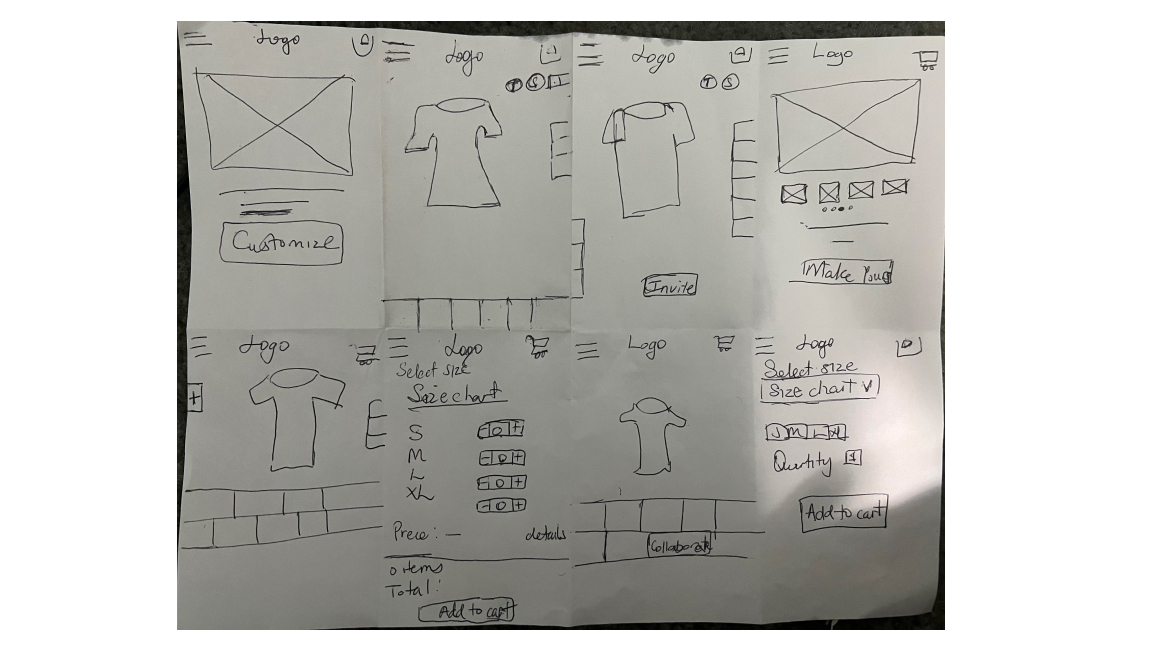 Logo
Customize
Logo
T S
Logo
T S
Invite
Logo
Make Yours
Logo
+
Logo
Select size
Size chart
S - 0 +
M - 0 +
L - 0 +
XL - 0 +
Prece: — details
0 items
Total:
Add to cart
Logo
Collaborate
Logo
Select size
Size chart v
S M L XL
Quantity 1
Add to cart